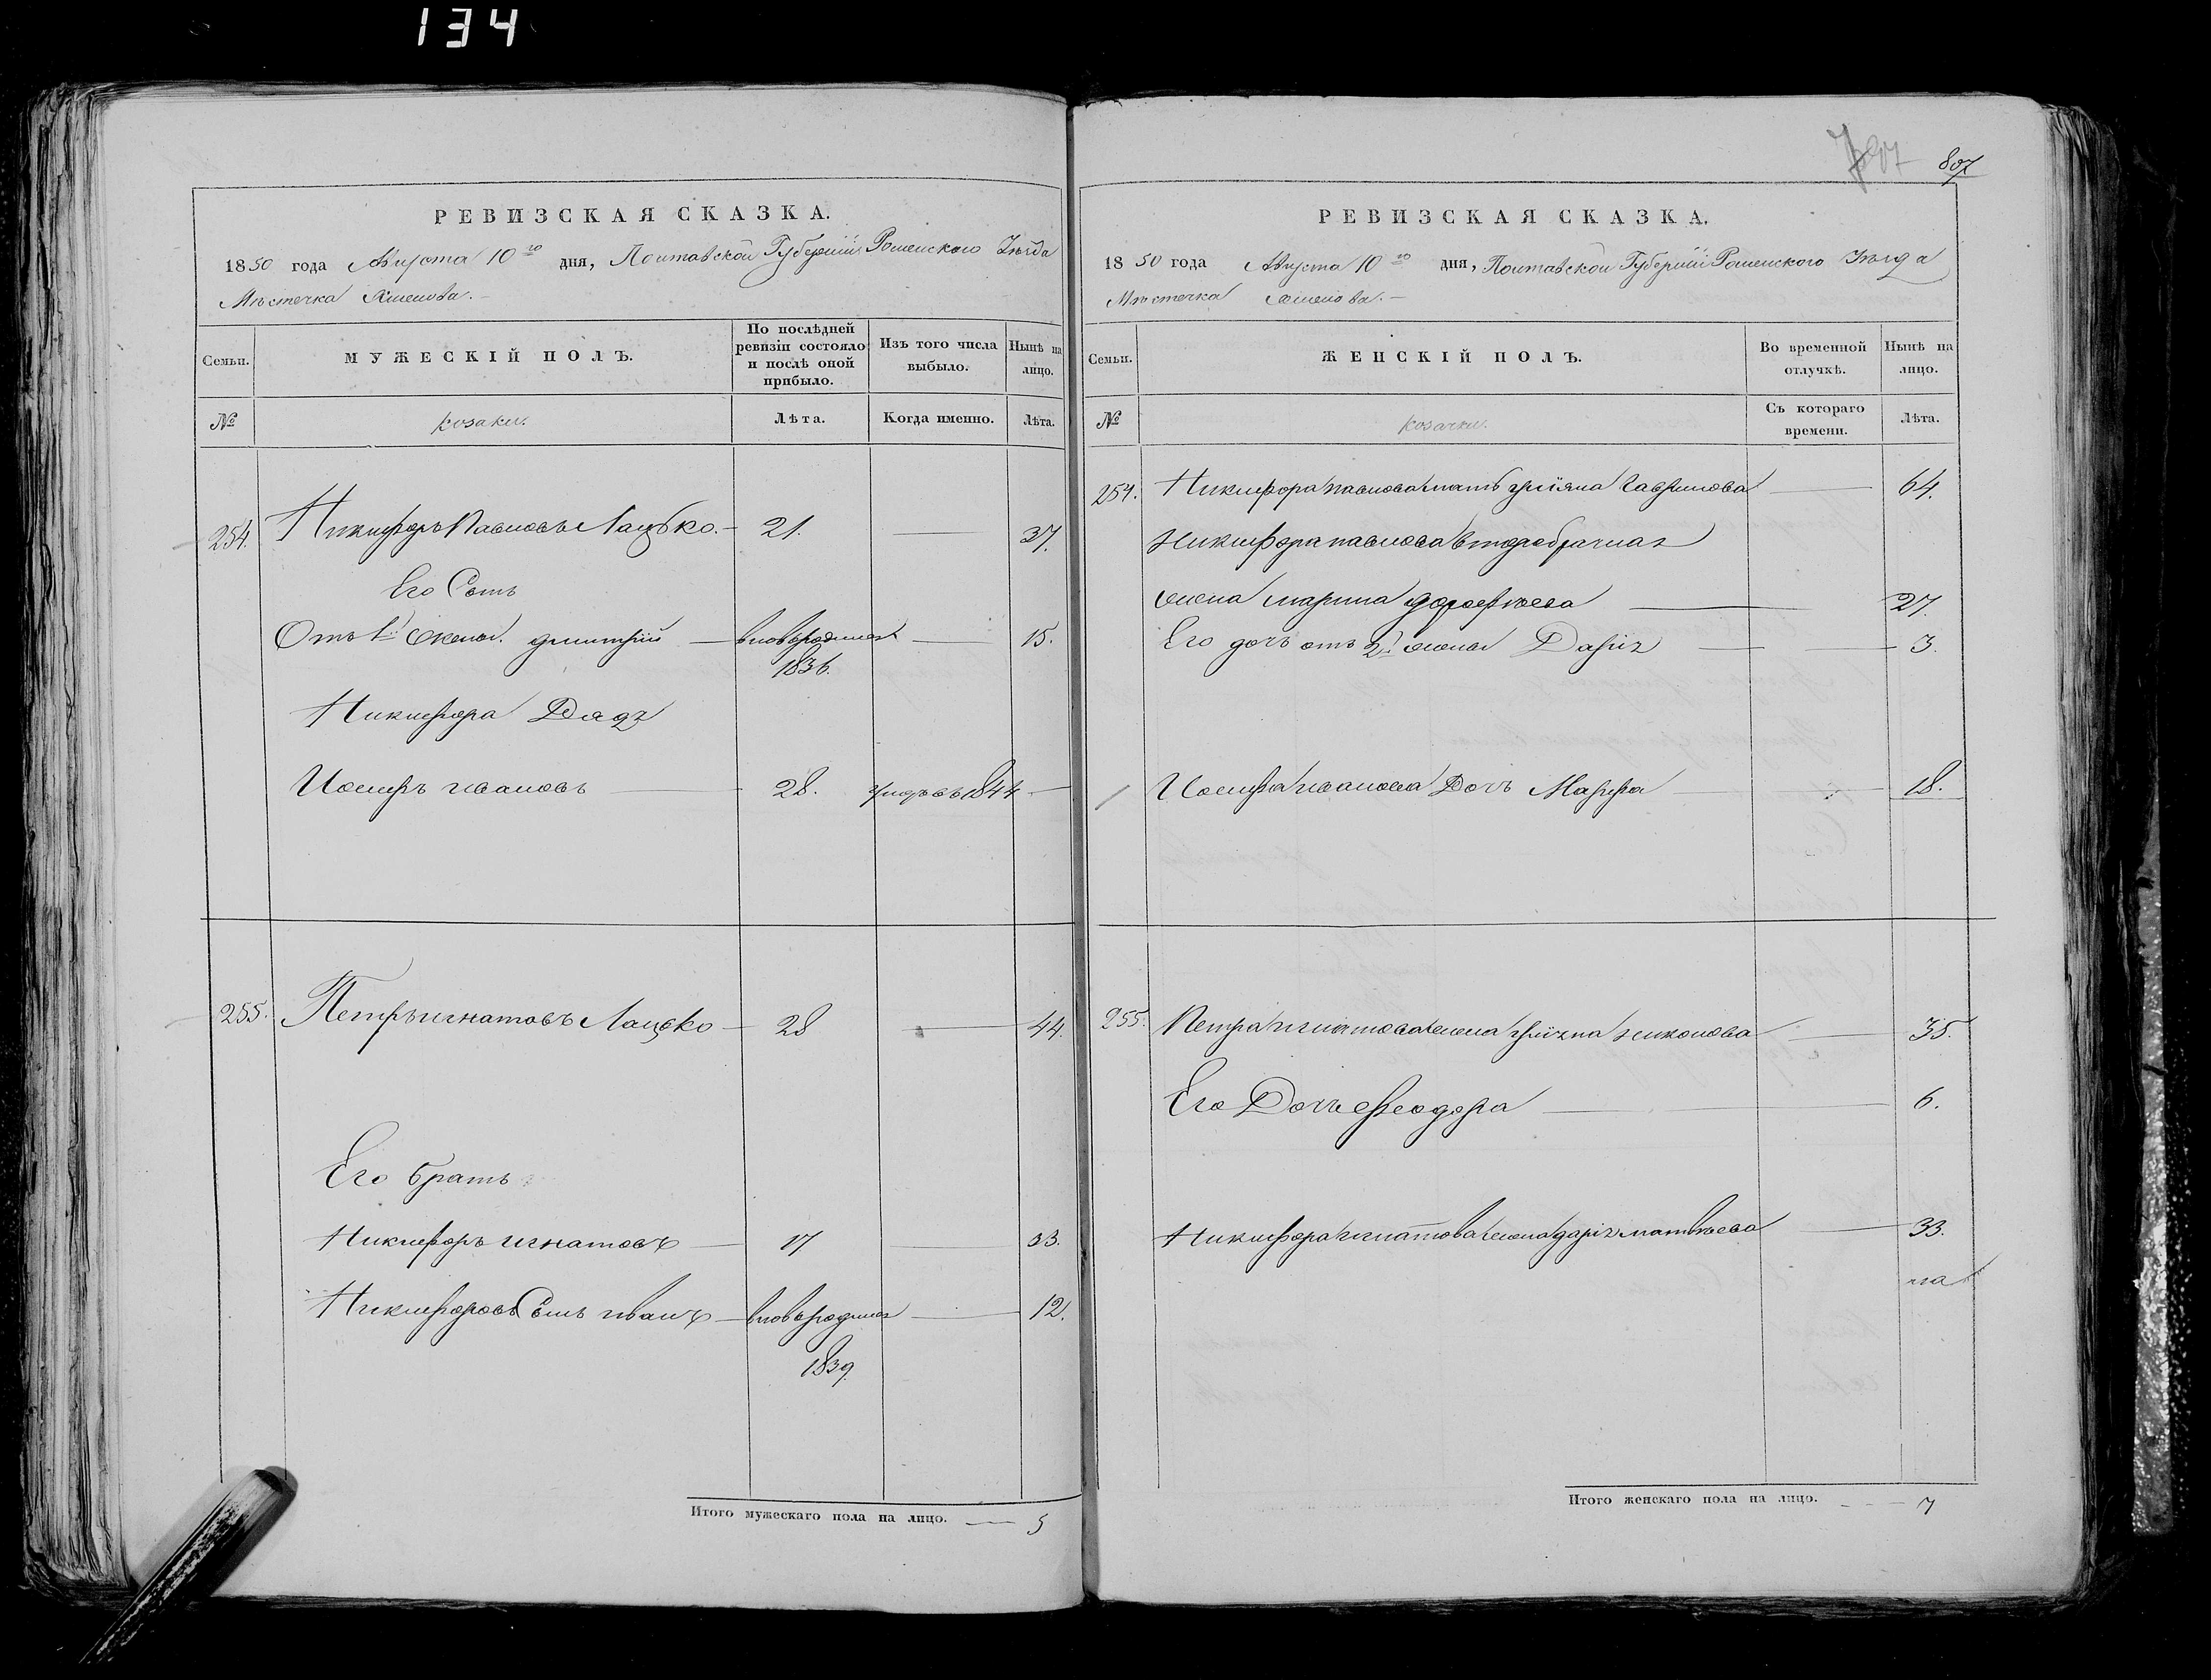 134
РЕВИЗСКАЯ СКАЗКА.
1850 года Августа 10го дня, Полтавской Губерніи Роменского Уѣзда
Мѣстечка
Семьи.
МУЖЕСКІЙ ПОЛЪ.
По послѣдней ревизіи состояло и послѣ оной прибыло.
Изъ того числа выбыло.
Нынѣ на лицо.
№
козаки.
Лѣта.
Когда именно.
Лѣта.
254. Никифоръ Павловъ Лацько. 21. 37.
Его Сынъ
Отъ 1й жены. Дмитрій вновьрожден 15.
1836.
Никифора Дядя
Иосифъ Ивановъ 28. 1844
255. Петръ Игнатовъ Лацько 28 44.
Его братъ
Никифоръ Игнатовъ 17 33.
Никифоровъ Сынъ Иванъ 12.
1839.
Итого мужескаго пола на лицо. 5
807
РЕВИЗСКАЯ СКАЗКА.
1850 года Августа 10го дня, Полтавской Губерніи Роменского Уѣзда
Мѣстечка
Семьи.
ЖЕНСКІЙ ПОЛЪ.
Во временной отлучкѣ.
Нынѣ на лицо.
№
козачки.
Съ котораго времени.
Лѣта.
254. Никифора Павлова мать Гаврилова 64.
Никифора Павлова второбрачная
жена Марина Дорофѣева 27.
Его дочь отъ 2й жены Дарія 3.
Иосифа Иванова Дочь Марфа 18.
255. Петра Игнатова жена Никонова 35.
Его Дочь Феодора 6.
Никифора Игнатова жена Дарія Матвѣева 33.
Итого женскаго пола на лицо. 7